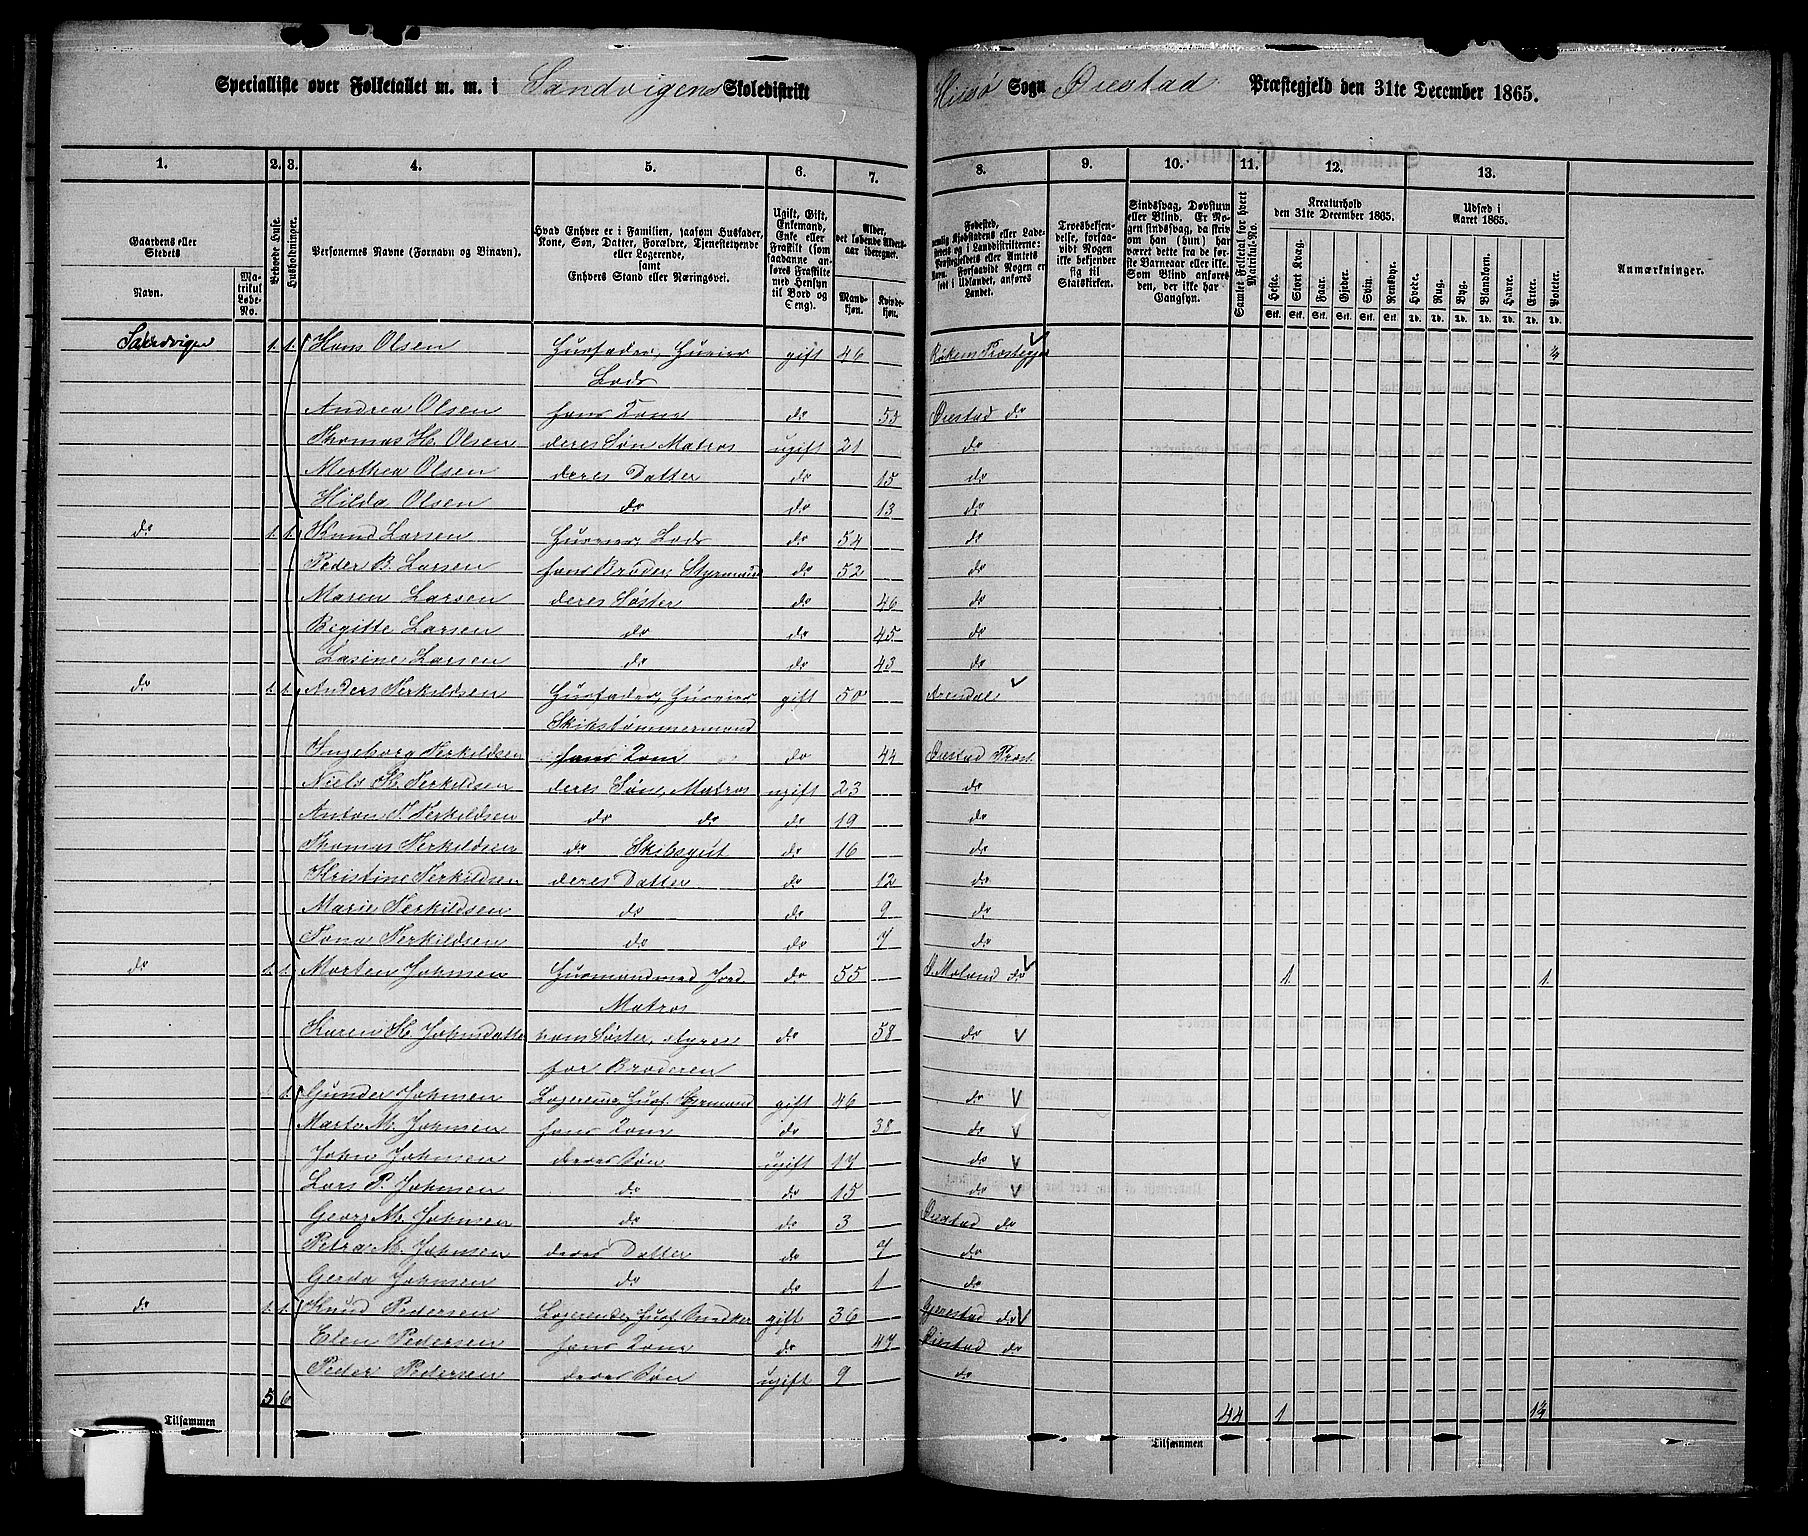 Specialliste over Folketallet m. m. i Sandvigens Skoledistrikt Hisø Sogn Øiestad Præstegjeld den 31te December 1865.
1. 2. 3. 4. 5. 6. 7. 8. 9. 10. 11. 12. 13.
Gaardens eller Stedets
Navn.
Matrikul Løbe-No.
Beboede Huse.
Husholdninger.
Personernes Navne (Fornavn og Tilnavn).
Hvad Enhver er i Familien, saasom Husfader, Kone, Søn, Datter, Forældre, Tjenestetyende eller Logerende, samt Enhvers Stand eller Næringsvei.
Ugift, Gift, Enkemand, Enke eller Fraskilt
Alder, det løbende Aldersaar iberegnet.
Mandkjøn. Kvindekjøn.
Fødested,
Troesbekjendelse, forsaavidt Nogen ikke bekjender sig til Statskirken.
Sindssvag, Døvstum eller Blind. Er Nogen sindssvag, da skriv om han (hun) har været dette fra de første Barneaar eller ikke. Som Blind anføres den, der ikke har Gangsyn.
Samlet Folketal for hvert Matrikul-No.
Kreaturhold den 31te December 1865.
Heste. Stort Kvæg. Faar. Gjeder. Sviin. Rensdyr.
Udsæd i Aaret 1865.
Hvede. Rug. Byg. Blandkorn. Havre. Erter. Poteter.
Anmærkninger.
Sandvigen 1. 1. Hans Olsen Husfader, Huseier gift 46
Lods
Andrea Olsen hans Kone do Øiestad do
Thomas H. Olsen deres Søn Matros ugift 21 do
Merthea Olsen deres Datter do 15 do
Hilda Olsen do do 13 do
do 1. 1. Knud Larsen Huseier, Lods do 54 do
Peder B. Larsen hans Broder, Styrmand do 52 do
Maren Larsen deres Søster do 46 do
Birgitte Larsen do do 45 do
Lasine Larsen do do 43 do
do 1. 1. Anders Terkildsen Husfader, Huseier gift 50 Arendal
Skibstømmermand
Ingeborg Terkildsen hans Kone do 44 Øiestad Præst
Niels H. Terkildsen deres Søn, Matros ugift 23 do
Anton T. Terkildsen do do do 19 do
Thomas Terkildsen do Skibsgut do 16 do
Kristine Terkildsen deres Datter do 12 do
Marie Terkildsen do do 9 do
Tona Terkildsen do do 7 do
do 1. 1. Morten Johnsen Husmand med Jord do 55 Ø. Moland do 1. 1.
Matros
Karen H. Johnsdatter hans Søster, do 58 do
for Broderen
1. Gunder Johnsen Logerende, Husf. Styrmand gift 46 do
Marte M. Johnsen hans Kone do 38 do
John Johnsen deres Søn ugift 17 do
Lars P. Johnsen do do 15 do
Georg M. Johnsen do do 3 Øiestad do
Petra M. Johnsen deres Datter do 7 do
Gerda Johnsen do do 1 do
do 1. 1. Knud Pedersen Logerende, Husf. Snedker gift 36 Gjerestad do
Elen Pedersen hans Kone do 47 Øiestad do
Peder Pedersen deres Søn ugift 9 do
5 6
Tilsammen
44 1
Tilsammen